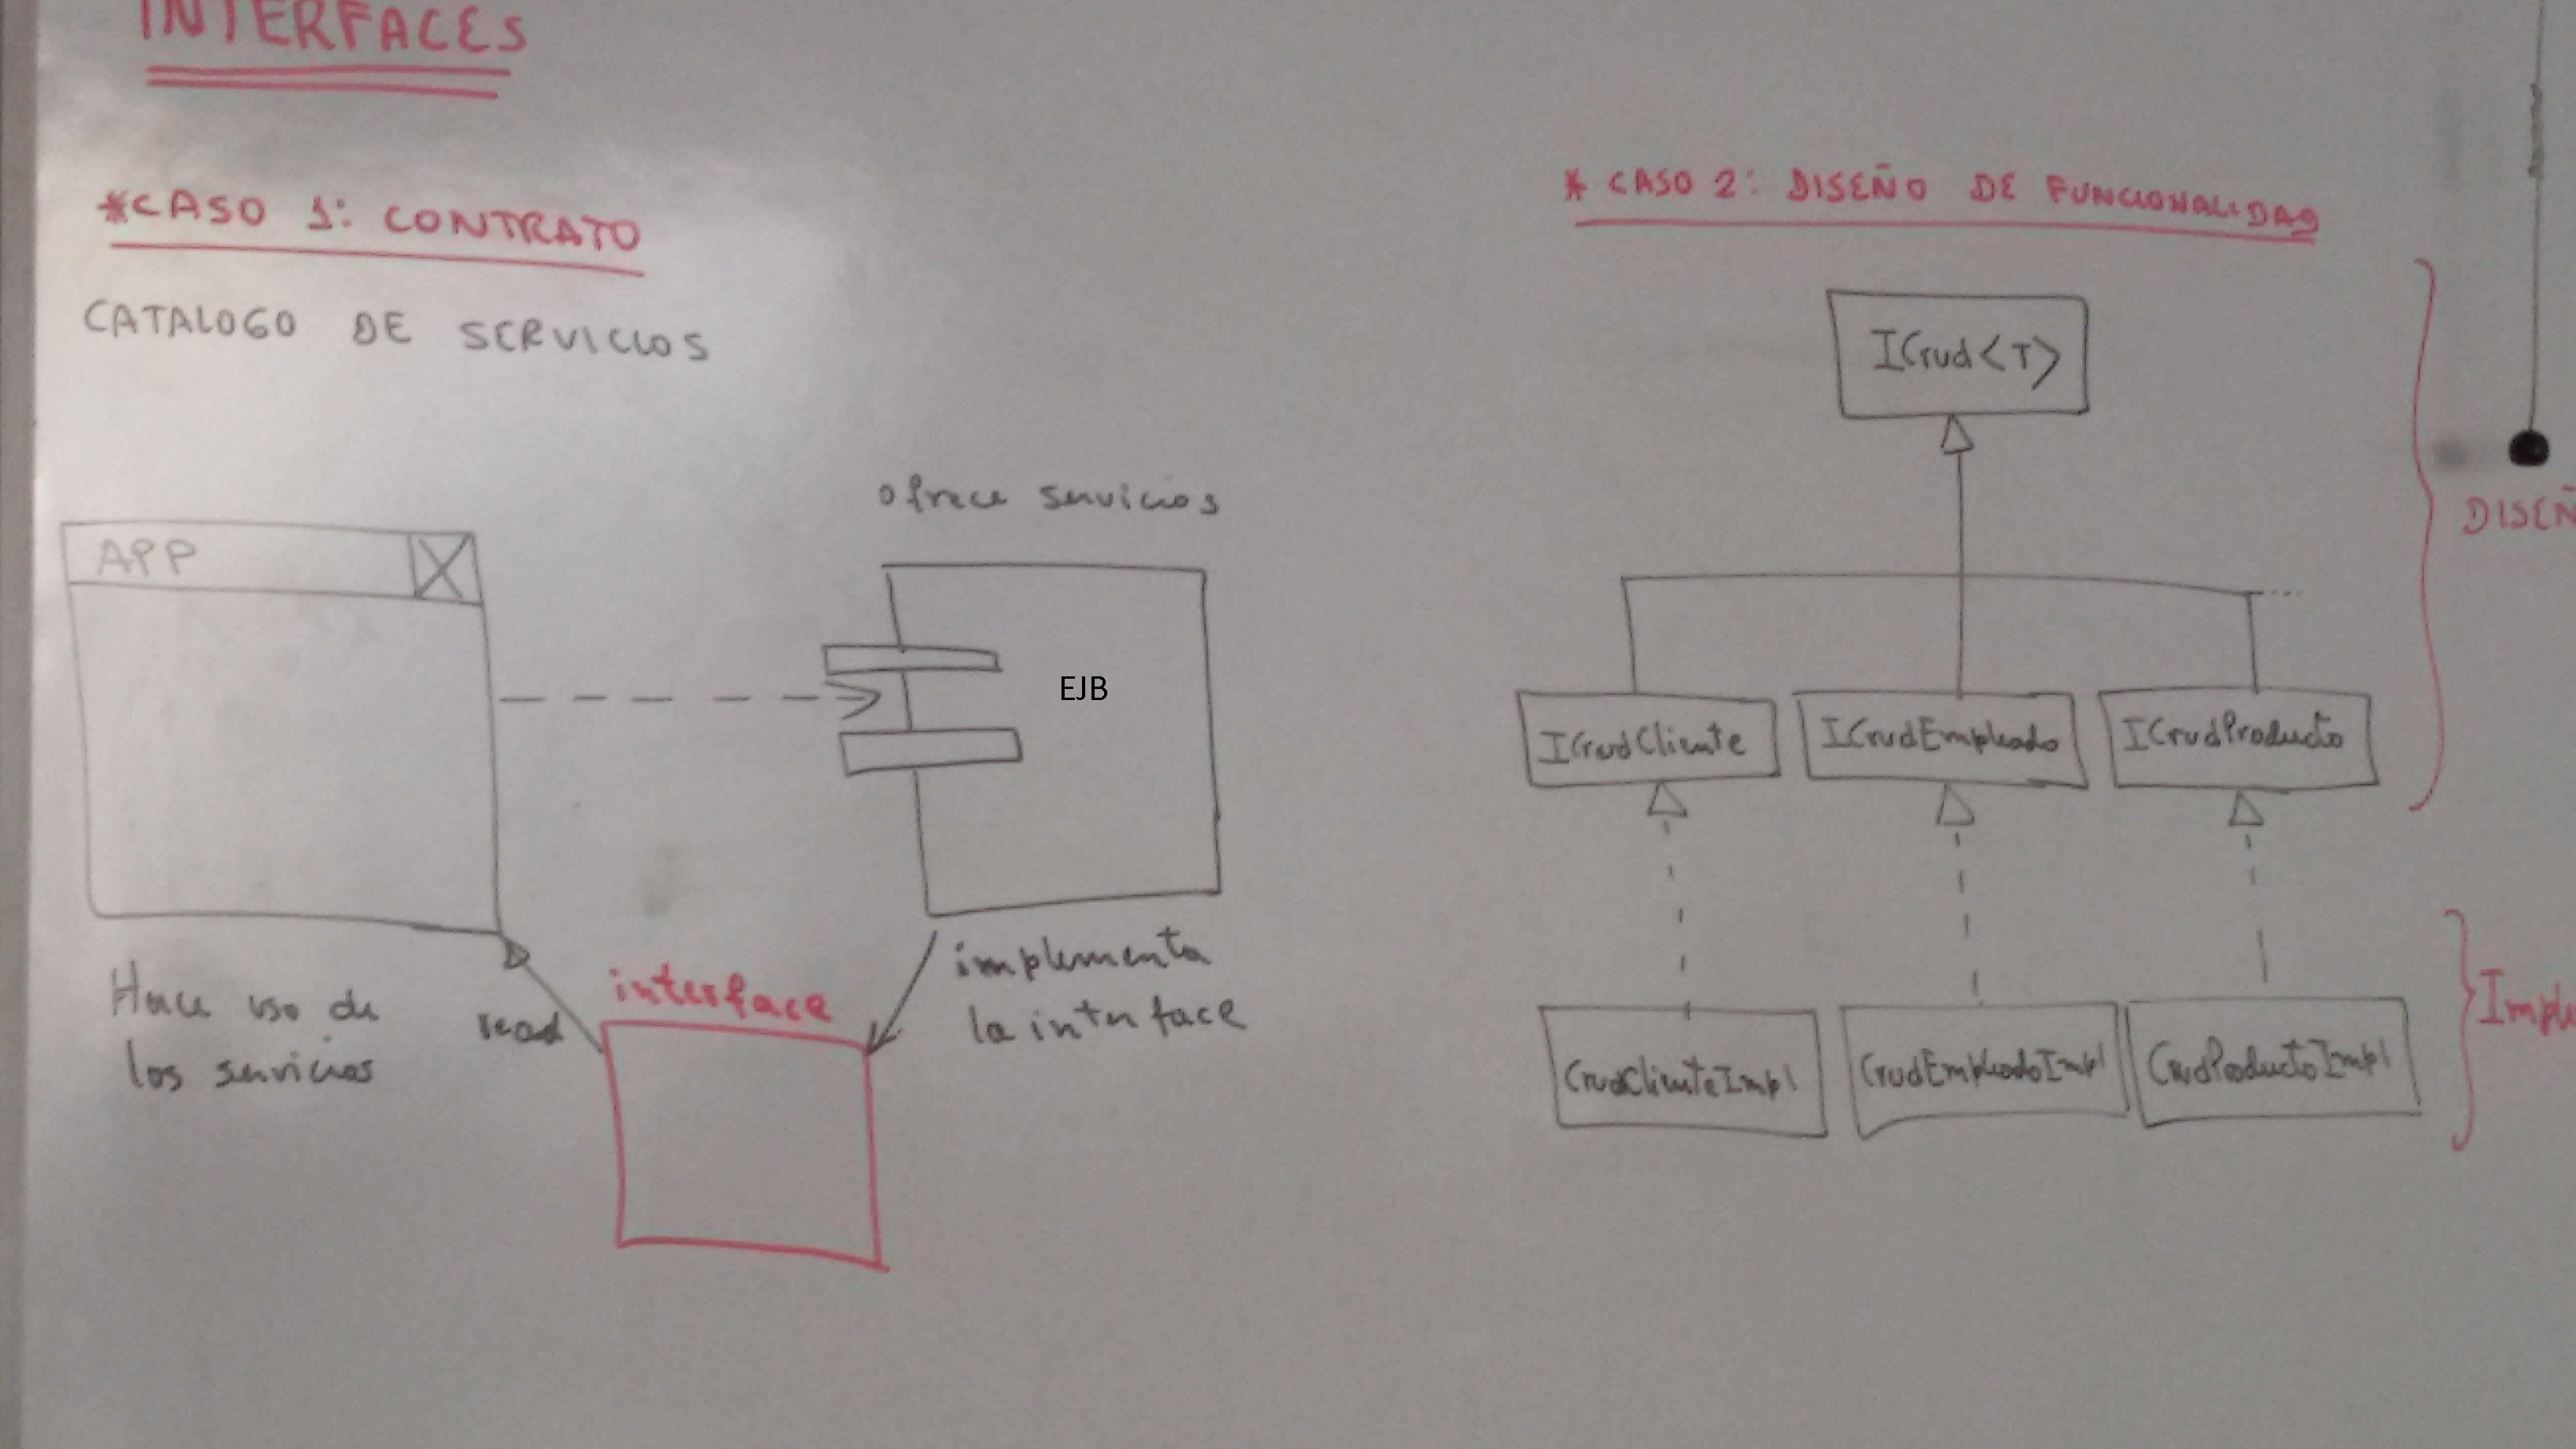 INTERFACES
*CASO 1: CONTRATO
CATALOGO DE SERVICIOS
APP
ofrece servicios
EJB
Hace uso de
los servicios
read
interface
implementa
la interface
* CASO 2: DISEÑO DE FUNCIONALIDAD
ICrud<T>
DISEÑ
ICrudCliente
ICrudEmpleado
ICrudProducto
CrudClienteImpl
CrudEmpleadoImpl
CrudProductoImpl
Imple